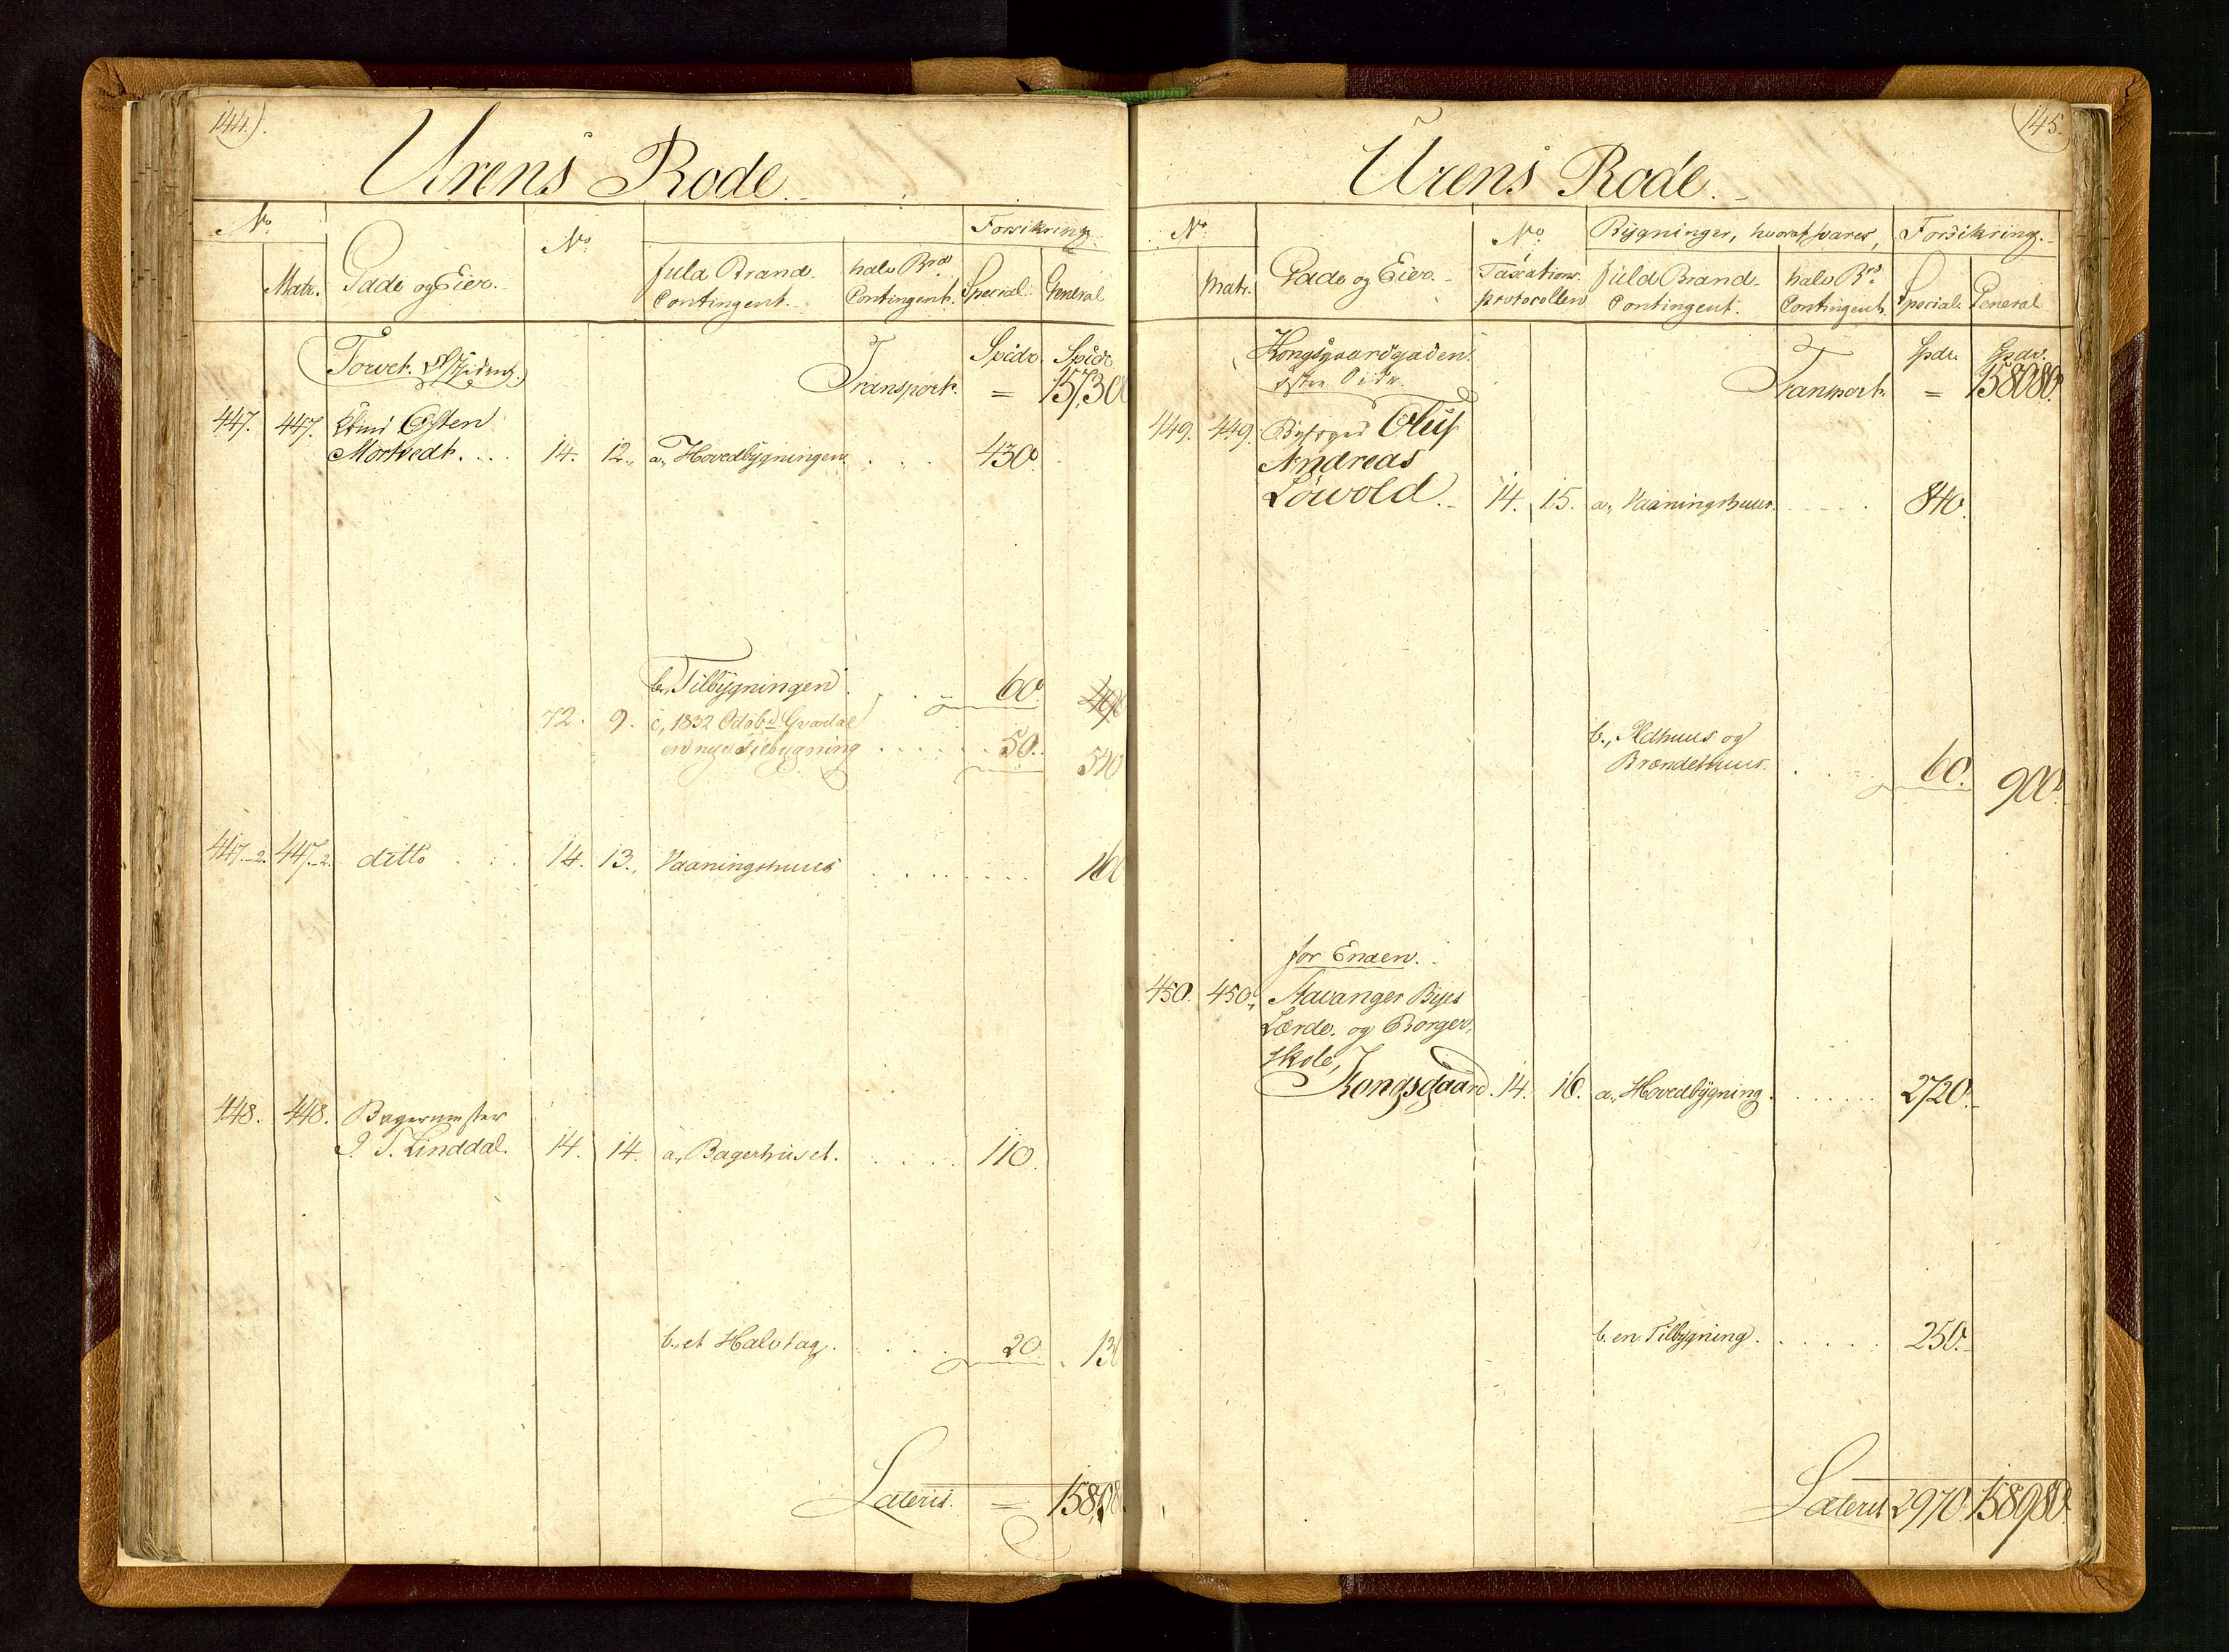 144.)
Urens Rode
No. No. Forsikring
Matr. Gade og Eier. fuld Brand Contingent. halv Brd Contingent. Special General
Torvet.
Spdr. Spdr
Transport. = 157300
447. 447. Østen
Mortvedt. . . . 14. 12. a, Hovedbygningen . . . 430.
b, Tilbygningen . . . 60. 490
72. 9. c, 1832 Octobr. Qvartal
en nye Tilbygning . . . . . . 50. 540
447.-2. 447.-2. ditto . . . 14. 13. Vaaningshuus . . . . . . . . 160
448. 448. Bagermester
J. T. Linddal. 14. 14. a, Bagerhuset. . . . . 110.
b. et Halvtag. . . . . 20. 130
Lateris. = 15808
145.
Urens Rode.
No. No. Bygninger, hvoraf svares, Forsikring.
Matr. Gade og Eier. Taxations protocollen fuld Brand- Contingent. halv Bd. Contingent. Special. General
Kongsgaardgaden.
østre Side.
Spdr. Spdr.
Transport. = 158080.
449. 449. Byfoged Oluf
Andreas
Løwold. 14. 15. a, Vaaningshuus. . . . . . 840.
b., Ildhuus og
Brændehuus. . . . . 60. 900.
for Enden.
450. 450. Stavanger Byes
Lærde. og Borger.
skole,
Kongsgaard. 14. 16. a, Hovedbygning. . . . . . . 2720.
b. en Tilbygning. . . . . . . 250.
Lateris 2970. 158980.